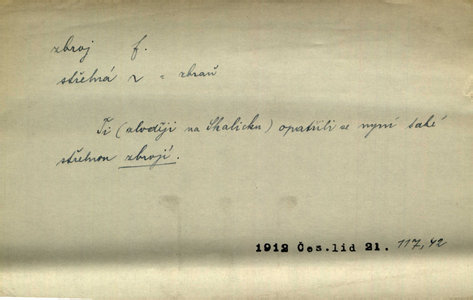 zbroj f.
střelná z = zbraň
Ti (zloději na Skalicku) opatřili se nyní také
střelnou zbrojí.
1912 Čes.lid 21. 117,42